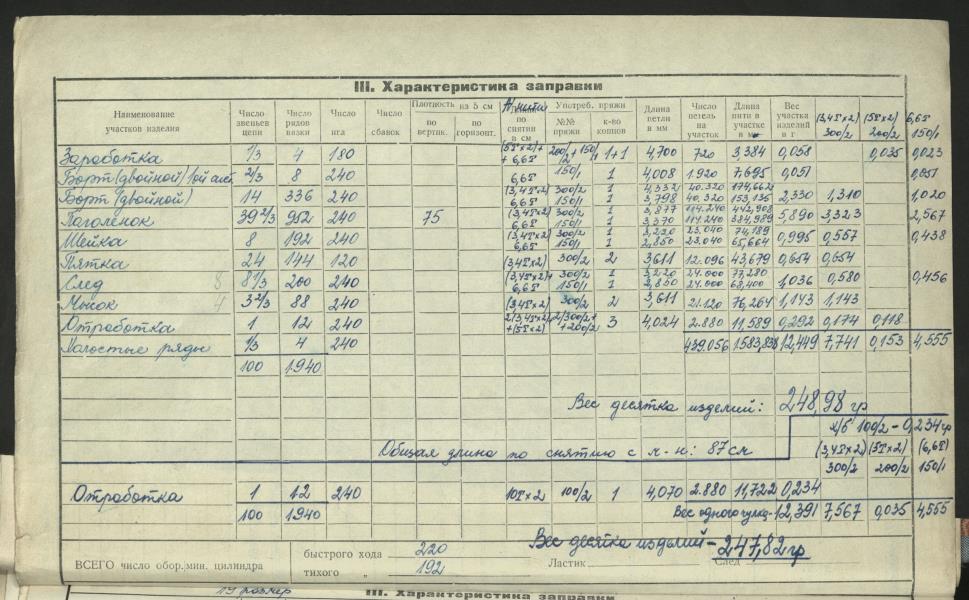 III. Характеристика заправки
Наименование участков изделия Число звеньев цепи Число рядов вязки Число игл Число сбавок Плотность на 5 см по вертик. по горизонт. по снятии в см Употреб. пряжи №№ пряжи к-во концов Длина петли в мм Число петель на участок Длина нити в участке в м Вес участка изделий в г (3,4Т×2) 300/2 (5Т×2) 200/2 6,6Т 150/1
Заработка 1/3 4 180 (5Т×2)+ + 6,6Т 200/2 + 150/1 1+1 4,700 720 3,384 0,058 0,035 0,023
Борт (двойной) 2/3 8 240 6,6Т 150/1 1 4,008 1.920 7,695 0,051 0,051
Борт (двойной) 14 336 240 (3,4Т×2) 6,6Т 300/2 150/1 1 1 4,332 3,798 40.320 40.320 174,662 153,135 2,330 1,310 1,020
Паголенок 39 2/3 952 240 75 (3,4Т×2) 6,6Т 300/2 150/1 1 1 3,877 3,370 114.240 114.240 442,908 384,989 5,890 3,323 2,567
Шейка 8 192 240 (3,4Т×2) 6,6Т 300/2 150/1 1 1 3,220 2,850 23.040 23.040 74,189 65,664 0,995 0,557 0,438
Пятка 24 144 120 (3,4Т×2) 300/2 2 3,611 12.096 43,679 0,654 0,654
След 8 8 1/3 200 240 (3,4Т×2) 6,6Т 300/2 150/1 1 1 3,220 2,850 24.000 24.000 77,280 68,400 1,036 0,580 0,456
Мысок 4 3 2/3 88 240 (3,4Т×2) 300/2 2 3,611 21.120 76,264 1,143 1,143
Отработка 1 12 240 2(3,4Т×2)+ +(5Т×2) 2/300/2+ +200/2 3 4,024 2.880 11,589 0,292 0,174 0,118
Холостые ряды 1/3 4 240 439.056 1583,838 12,449 7,741 0,153 4,555
100 1940
Вес десятка изделий: 248,98 гр
х/б 100/2 - 0,234 гр
Общая длина по снятию с м-н: 87 см (3,4Т×2) (5Т×2) (6,6Т)
300/2 200/2 150/1
Отработка 1 12 240 10Т×2 100/2 1 4,070 2.880 11,722 0,234
100 1940 Вес одного чулка - 12,391 7,567 0,035 4,555
Вес десятка изделий - 247,82 гр
ВСЕГО число обор./мин. цилиндра быстрого хода 220
тихого " 192 Ластик След
19 размер
III. Характеристика заправки